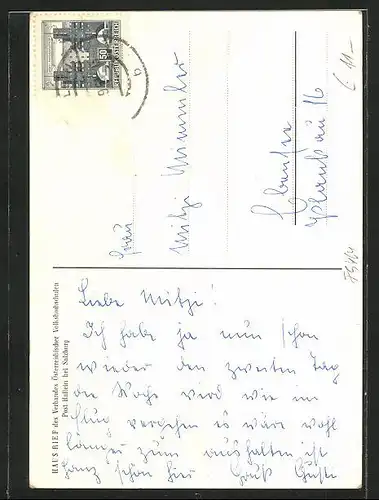 HAUS RIEF des Verbandes Österreichischer Volkshochschulen
Post Hallein bei Salzburg
Liebe Mitzi!
Ich habe ja nun schon
wieder den zweiten Tag
die Woche wird wie im
Flug vergehen es wäre wohl
länger zum aushalten ist
ganz schön hier Gruß Guste
Frau
Mitzi
Ebensee
16
50
REPUBLIK ÖSTERREICH
€ 11-